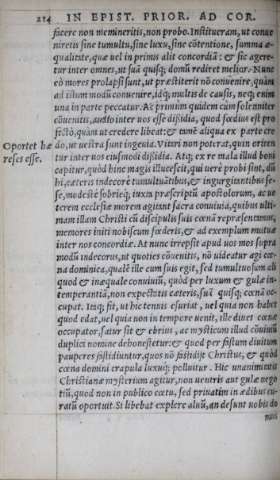 214 IN EPIST. PRIOR. AD COR.
facere non memineritis, non probo. Institueram, ut conue
niretis sine tumultu, sine luxu, sine cōtentione, summa æ-
qualitate, quæ uel in primis alit concordiā: & sic agere-
tur inter omnes, ut suā quisq; domū rediret melior. Nunc
eò mores prolapsi sunt, ut præstiterit nō conuenire, quàm
ad istum modū conuenire, idq; multis de causis, neq; enim
una in parte peccatur. Ac primùm quidem cùm solenniter
cōuenitis, audio inter uos esse dissidia, quod fœdius est pro
fectò, quàm ut credere libeat: & tamē aliqua ex parte cre
Oportet hæ do, ut uestra sunt ingenia. Vitari non poterat, quin orien
reses esse. tur inter uos eiusmodi dissidia. Atq; ex re mala illud boni
capitur, quòd hinc magis illuescit, qui uerè probi sint, dū
hi, cæteris indecorè tumultuātibus, & ingurgitantibus se-
se, modestè sobrieq;, iuxta præscriptū apostolorum, ac ue
terem ecclesiæ morem agitant sacra conuiuia, quibus ulti-
mam illam Christi cū discipulis suis cœnā repræsentamus,
memores initi nobiscum fœderis, & ad exemplum mutuæ
inter nos concordiæ. At nunc irrepsit apud uos mos supra
modū indecorus, ut quoties cōuenitis, nō uideatur agi cœ-
na dominica, qualē ille cum suis egit, sed tumultuosum ali
quod & inæquale conuiuiū, quòd per luxum & gulæ in-
temperantiā, non expectatis cæteris, suā quisq; cœnā oc-
cupat. Itaq; fit, ut hic tenuis esuriat, uel quia non habet
quod edat, uel quia non in tempore uenit, ille diues cœnæ
occupator, satur sit & ebrius, ac mysticum illud cōuiuiū
duplici nomine dehonestetur: & quòd per fastum diuitum
pauperes fastidiuntur, quos nō fastidijt Christus, & quòd
cœna domini crapula luxuq; polluitur. Hic unanimitatis
Christianæ mysterium agitur, non uentris aut gulæ nego
tiū, quod non in publico cœtu, sed priuatim in ædibus cu-
rari oportuit. Si libebat explere aluū, an desunt uobis do
mus